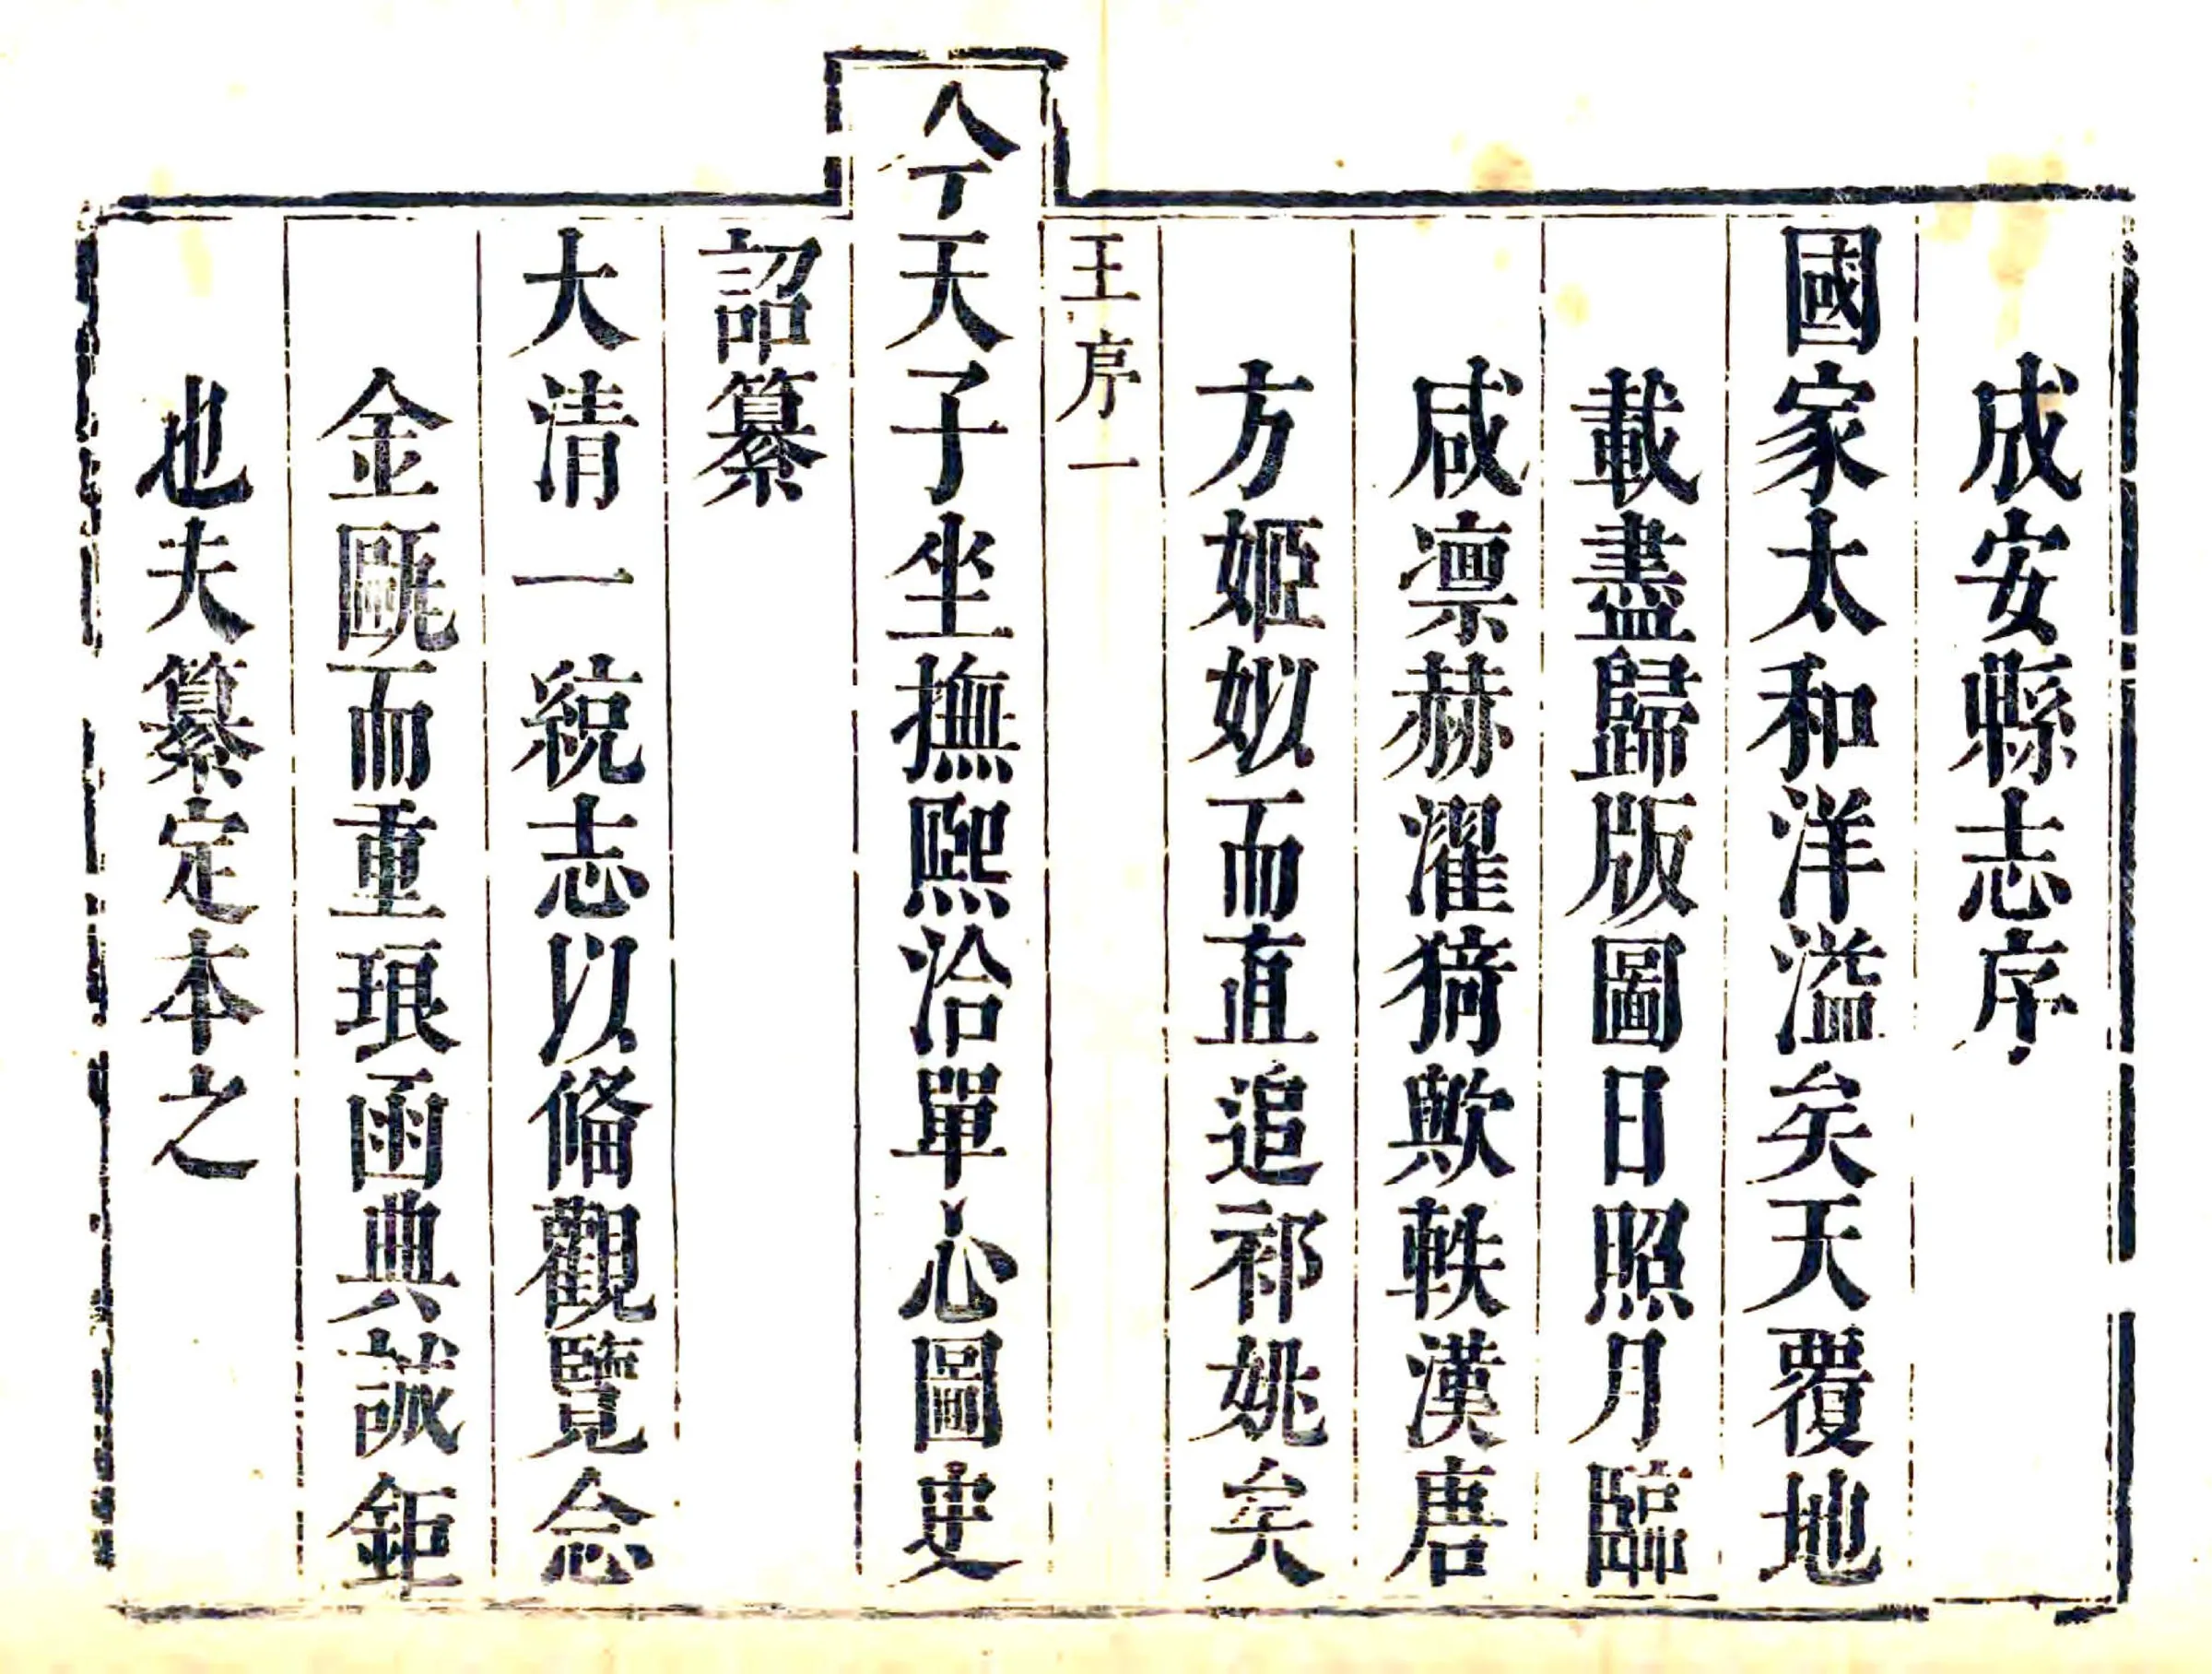 成安縣志序
國家太和洋溢矣天覆地
載盡歸版圖日照月臨
咸凛赫濯猗歟軼漢唐
方姬姒而直追祁姚矣
王序一
今天子坐撫熙洽單心圖史
詔纂
大清一統志以俻觀覽念
金甌而重琅函典誠鉅
也夫纂定本之